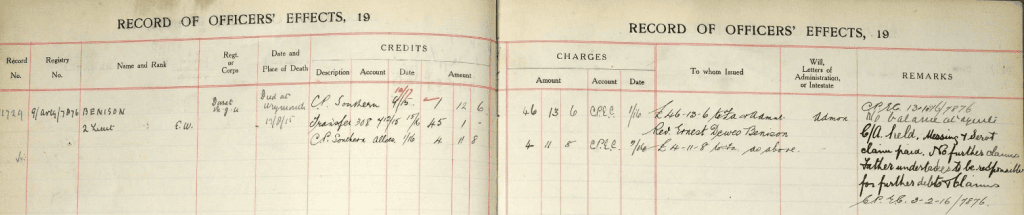 RECORD OF OFFICERS' EFFECTS, 19
CREDITS
Record No.
Registry No.
Name and Rank
Regt. or Corps
Date and Place of Death
Description
Account
Date
Amount
E/Arty/7876 BENISON
2 Lieut E.W.
Dorset R.G.A.
Died at Weymouth
17/8/15
C.P. Southern 9/15 1 12 6
Transfer 308 15/16 45 1 -
C.P. Southern 1/16 4 11 8
RECORD OF OFFICERS' EFFECTS, 19
CHARGES
Amount
Account
Date
To whom Issued
Will, Letters of Administration, or Intestate
REMARKS
46 13 6 C.P.E.C. 1/16 £46-13-6 to Fa & Admor
Rev. Ernest Benison
Admon
4 11 8 C.P.E.C. 2/16 £4-11-8 to Fa. as above
No balance at Agents
C/A held. Messing & Servt
claim paid. No further claims
Father undertakes to be responsible
for further debts & claims
C.P.E.C. 3-2-16/7876.